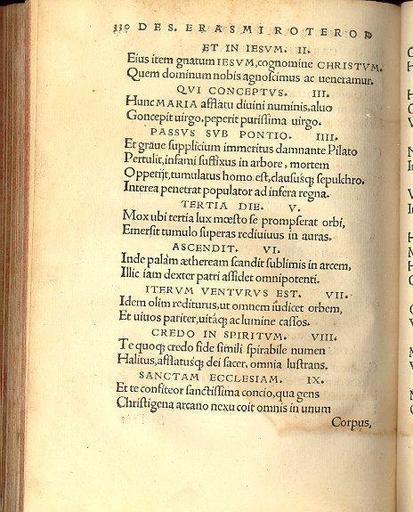 330 DES. ERASMI ROTEROD
ET IN IESVM. II.
Eius item gnatum IESVM, cognomine CHRISTVM.
Quem dominum nobis agnoscimus ac veneramur.
QVI CONCEPTVS. III.
Hunc MARIA afflatu diuini numinis, aluo
Concepit uirgo, peperit purissima uirgo.
PASSVS SVB PONTIO. IIII.
Et graue supplicium immeritus damnante Pilato
Pertulit, infami suffixus in arbore, mortem
Oppetijt, tumulatus homo est, claususq; sepulchro.
Interea penetrat populator ad infera regna.
TERTIA DIE. V.
Mox ubi tertia lux mœsto se prompserat orbi,
Emersit tumulo superas rediuiuus in auras.
ASCENDIT. VI.
Inde palàm æthereám scandit sublimis in arcem,
Illic iam dexter patri assidet omnipotenti.
ITERVM VENTVRVS EST. VII.
Idem olim rediturus, ut omnem iudicet orbem,
Et uiuos pariter, uitaq; ac lumine cassos.
CREDO IN SPIRITVM. VIII.
Te quoq; credo fide simili spirabile numen
Halitus, afflatusq; dei sacer, omnia lustrans.
SANCTAM ECCLESIAM. IX.
Et te confiteor sanctissima concio, qua gens
Christigena arcano nexu coit omnis in unum
Corpus,